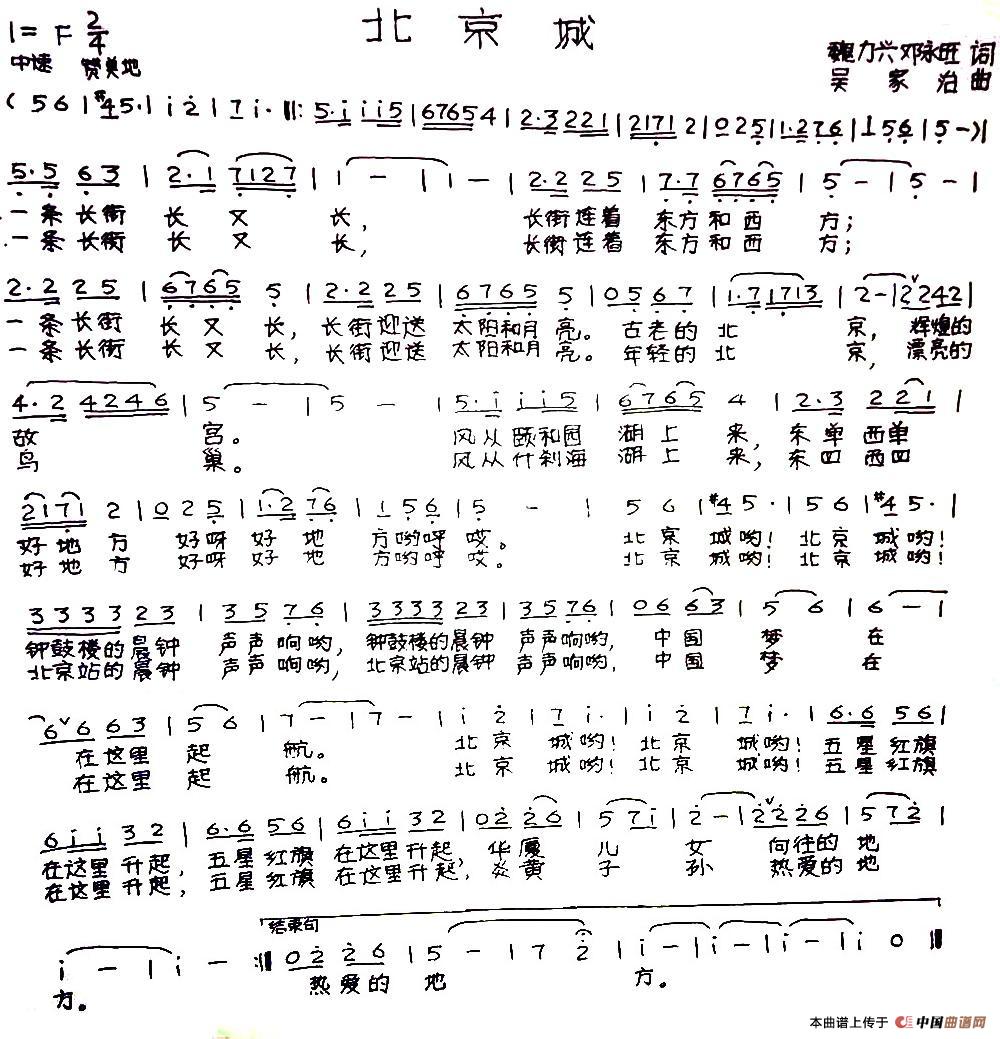 北京城
1=F 2/4
中速 赞美地
魏力兴 邓永旺 词
吴家治 曲
( 5 6 | #4 5· | i 2 | 7 i· ‖: 5· i i i 5 | 6765 4 | 2·3 221 | 2171 2 | 0 2 5 | 1·2 7 6 | 1 5 6 | 5 - ) |
5·5 6 3 | 2·1 7127 | 1 - | 1 - | 2·2 2 5 | 7·7 6765 | 5 - | 5 - |
一条长街 长又长, 长街连着 东方和西方;
一条长街 长又长, 长街连着 东方和西方;
2·2 2 5 | 6765 5 | 2·2 2 5 | 6765 5 | 0 5 6 7 | 1·7 1713 | 2 - | 2 2 4 2 |
一条长街 长又长, 长街迎送 太阳和月亮。 古老的北京, 辉煌的
一条长街 长又长, 长街迎送 太阳和月亮。 年轻的北京, 漂亮的
4·2 4246 | 5 - | 5 - | 5· i i i 5 | 6765 4 | 2·3 2 2 1 |
故宫。 风从颐和园 湖上来, 东单西单
鸟巢。 风从什刹海 湖上来, 东四西四
2171 2 | 0 2 5 | 1·2 7 6 | 1 5 6 | 5 - | 5 6 | #4 5· | 5 6 | #4 5· |
好地方 好呀好地方哟呼哎。 北京城哟! 北京城哟!
好地方 好呀好地方哟呼哎。 北京城哟! 北京城哟!
3333 2 3 | 3 5 7 6 | 3333 2 3 | 3 5 7 6 | 0 6 6 3 | 5 6 | 6 - |
钟鼓楼的晨钟 声声响哟, 钟鼓楼的晨钟 声声响哟, 中国梦在
北京站的晨钟 声声响哟, 北京站的晨钟 声声响哟, 中国梦在
6 6 6 3 | 5 6 | 7 - | 7 - | i 2 | 7 i· | i 2 | 7 i· | 6·6 5 6 |
在这里起航。 北京城哟! 北京城哟! 五星红旗
在这里起航。 北京城哟! 北京城哟! 五星红旗
6 i i 3 2 | 6·6 5 6 | 6 i i 3 2 | 0 2 2 6 | 5 7 i | 2 - | 2 2 2 6 | 5 7 2 |
在这里升起, 五星红旗 在这里升起, 华厦儿女 向往的地
在这里升起, 五星红旗 在这里升起, 炎黄子孙 热爱的地
结束句
i - | i - :‖ 0 2 2 6 | 5 - | 7 2 | i - | i - | i - | i 0 ‖
方。 热爱的地方。
本曲谱上传于 中国曲谱网